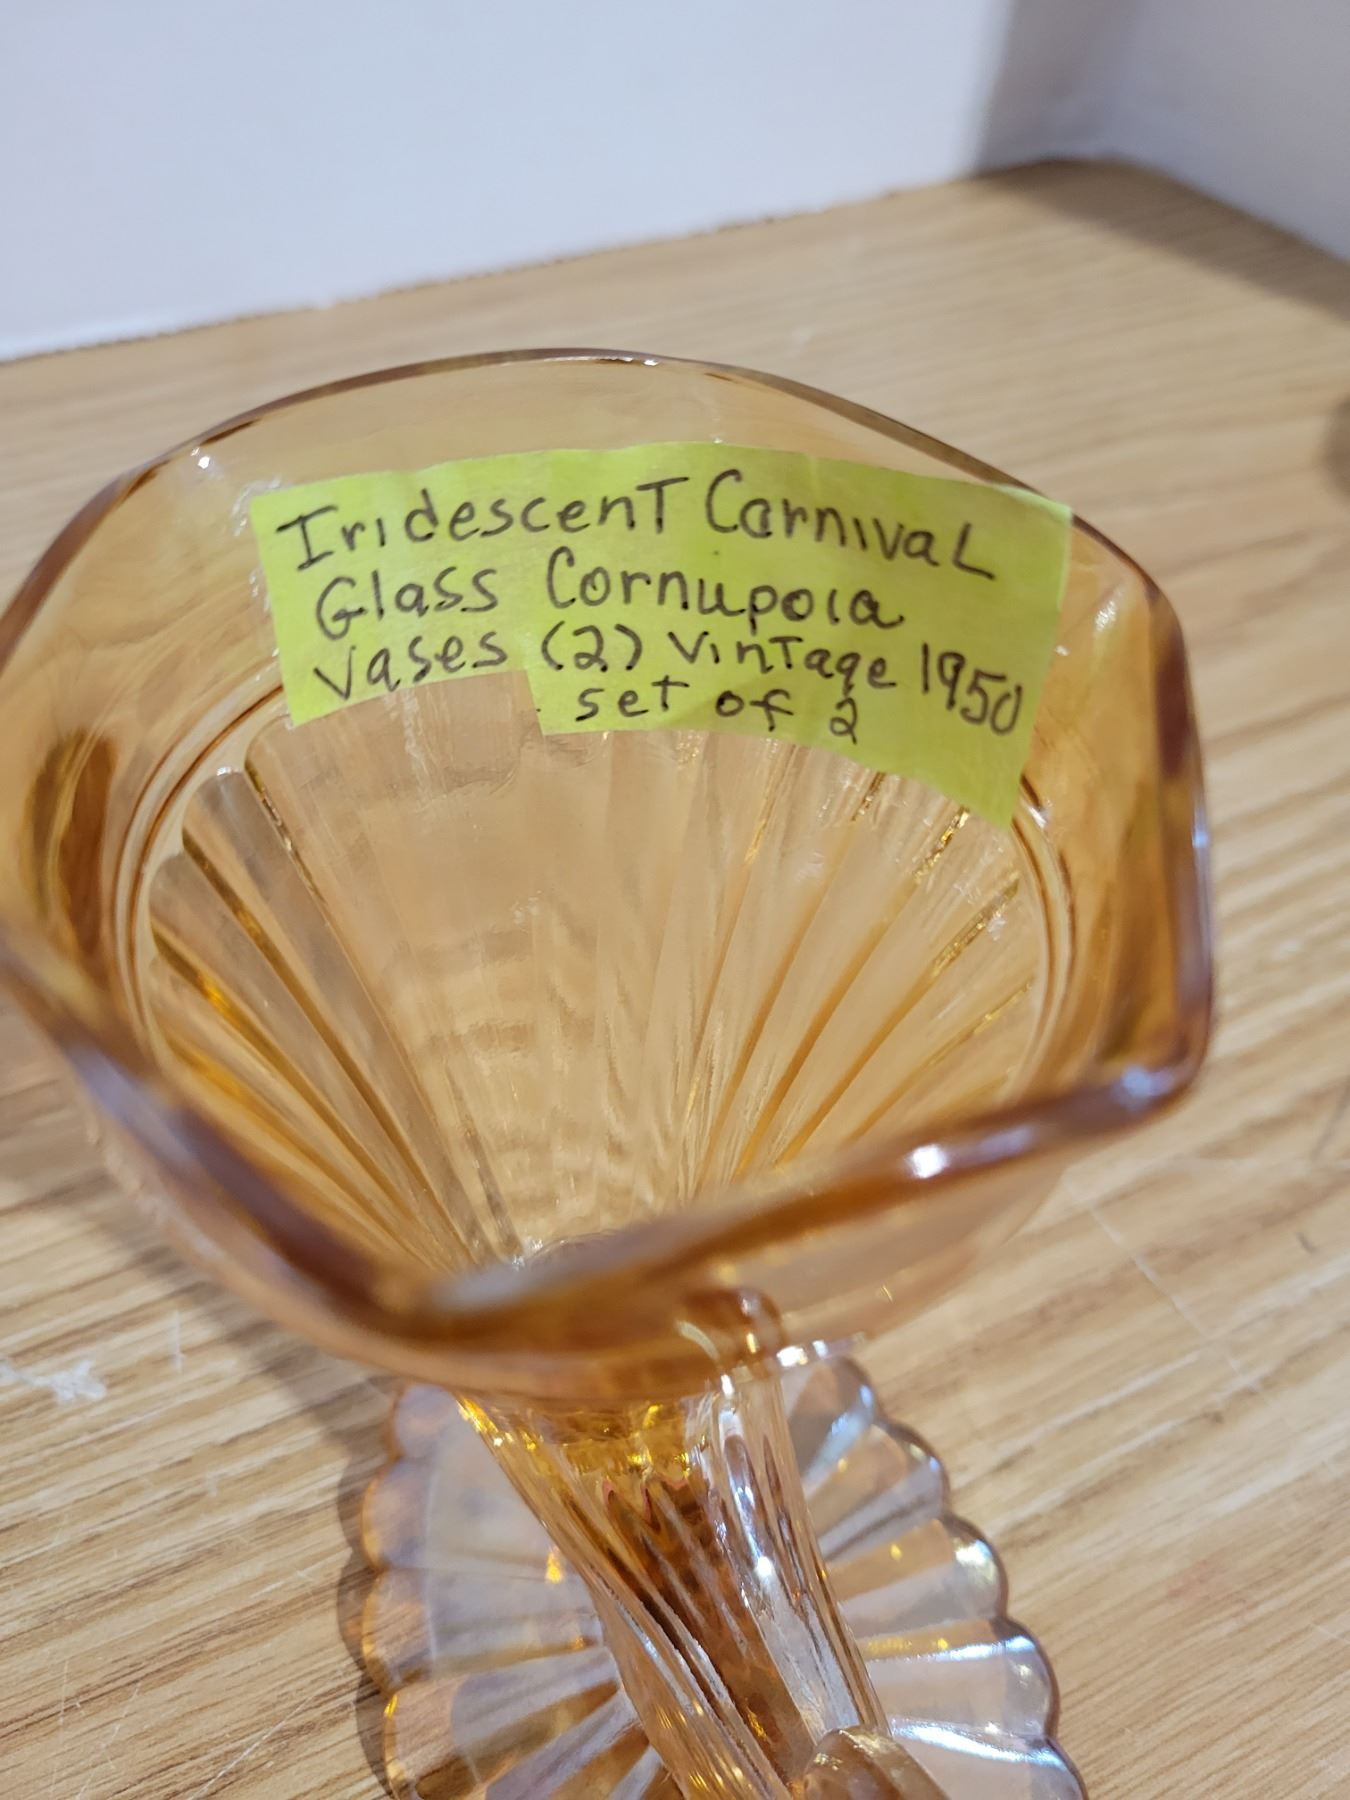 IridescenT CarnivaL
Glass Cornupoia
vases (2) VinTage 1950
seT of 2